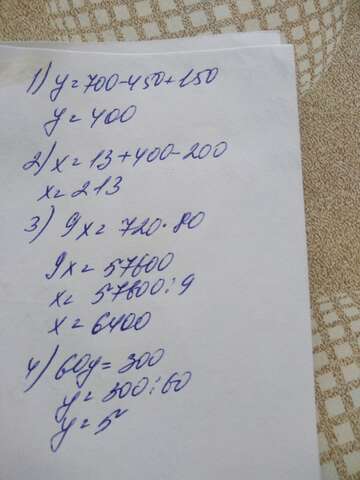 1) y=700-450+150
y=400
2) x=13+400-200
x=213
3) 9x=720·80
9x=57600
x=57600:9
x=6400
4) 60y=300
y=300:60
y=5